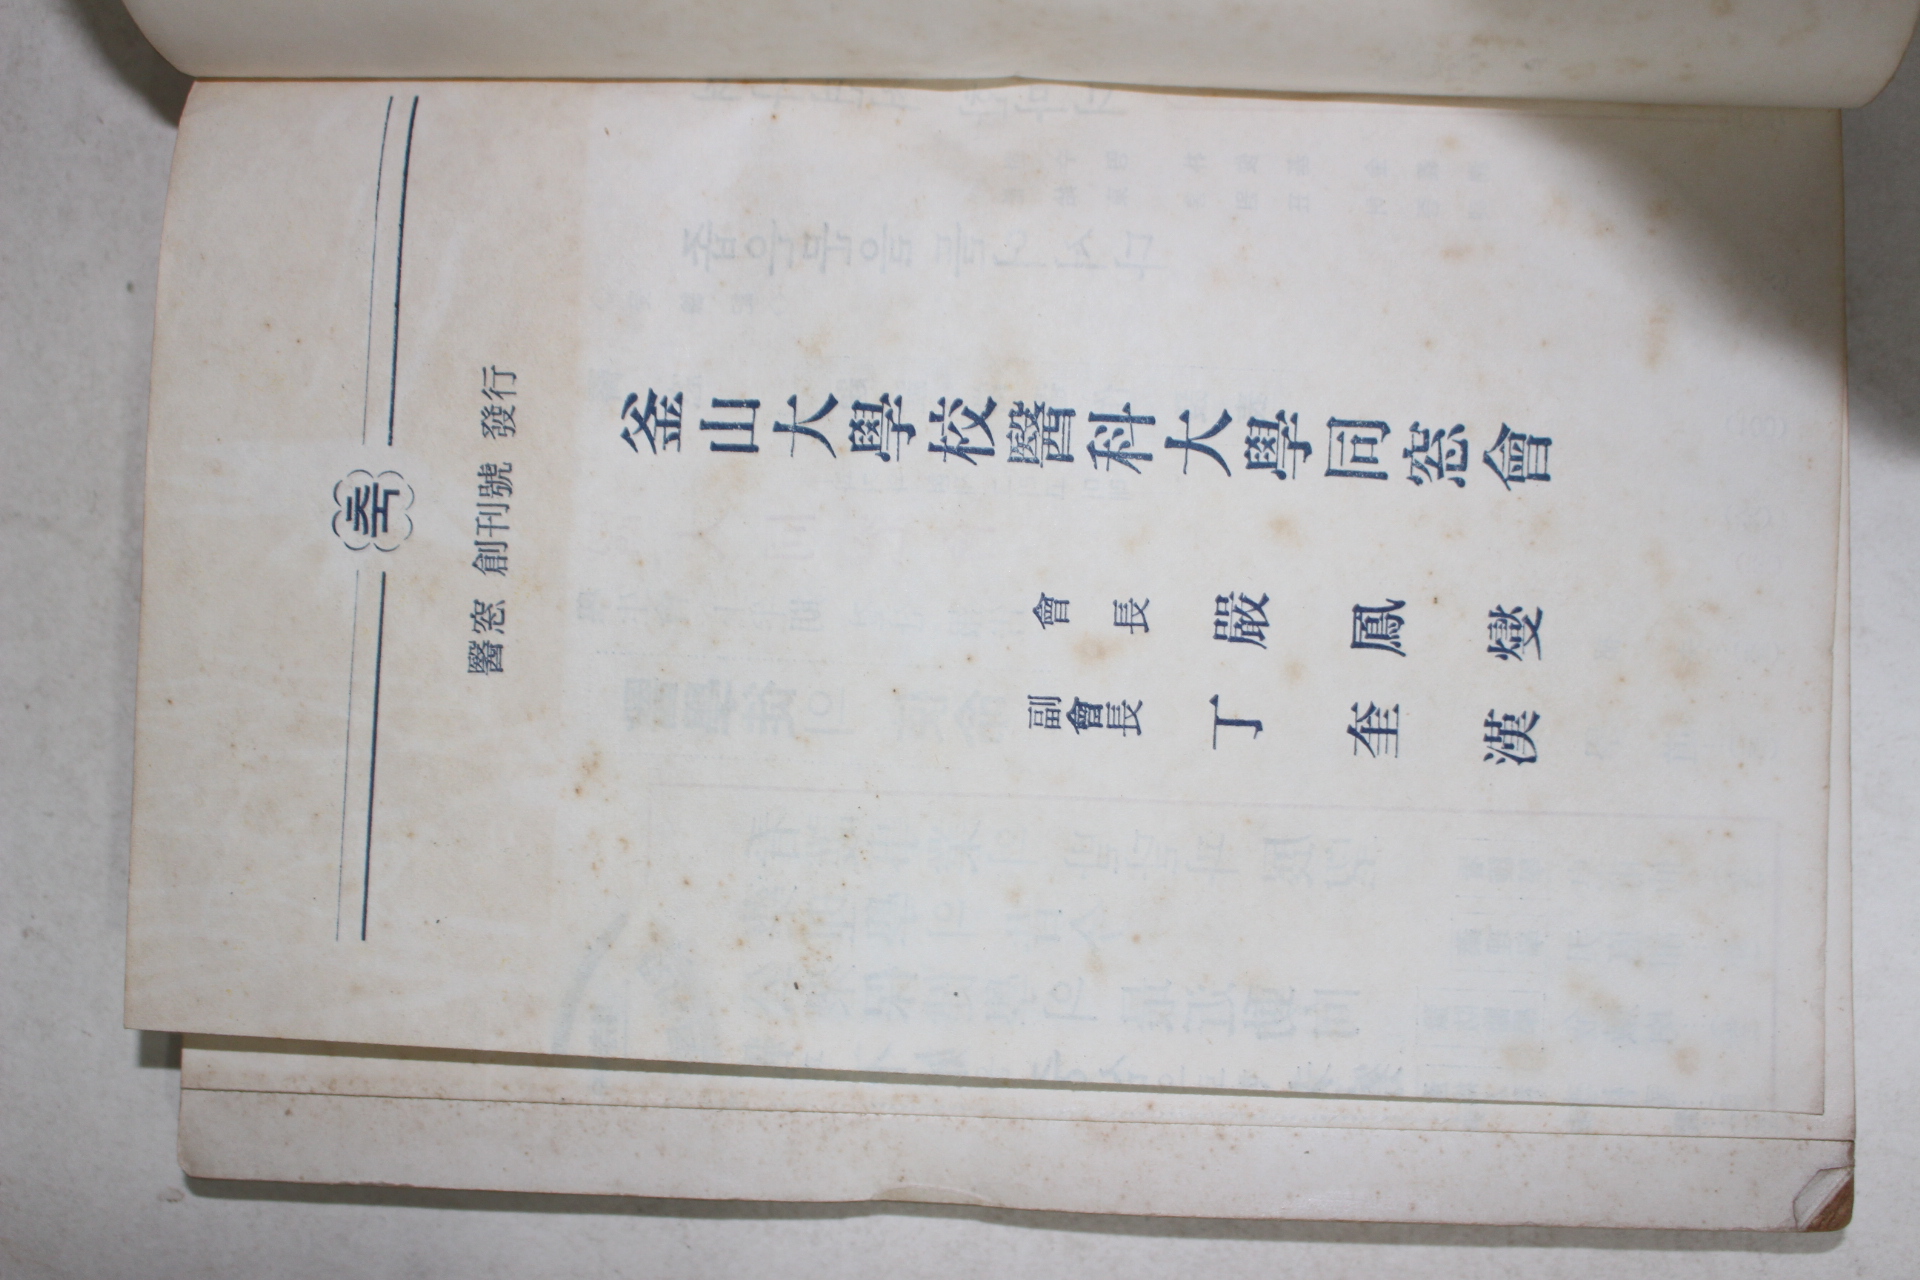 축
醫窓 創刊號 發行
釜山大學校醫科大學同窓會
會長 嚴鳳燮
副會長 丁奎漢